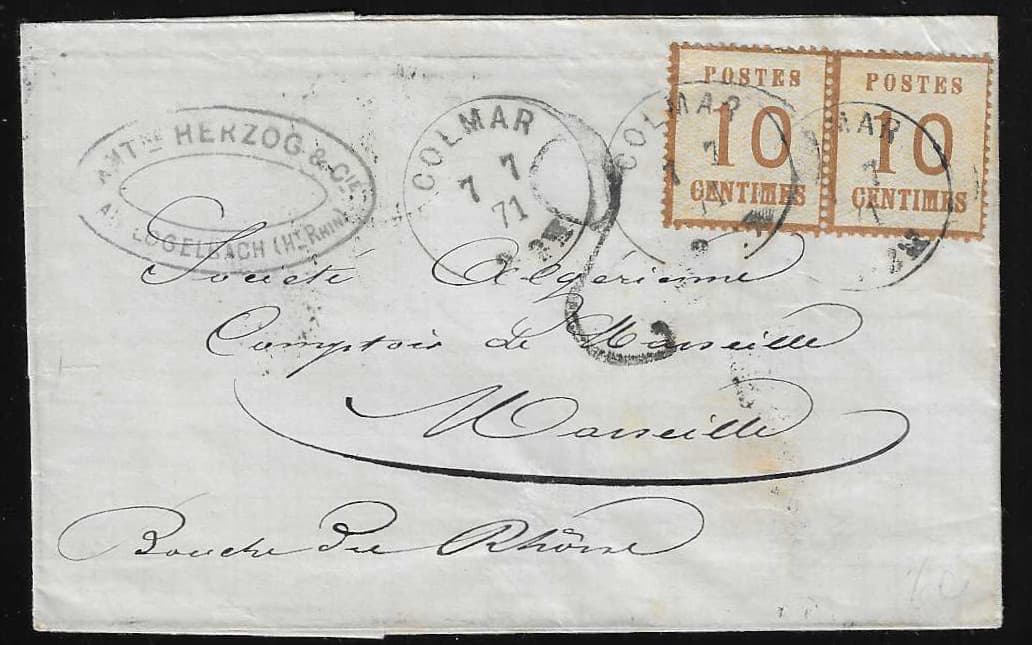 ANTNE HERZOG & CIE
AU LOGELBACH (HT RHIN)
COLMAR
7 7
71
COLMAR
7 7
71
POSTES
10
CENTIMES
POSTES
10
CENTIMES
Société Algérienne
Comptoir de Marseille
Marseille
Bouche du Rhône